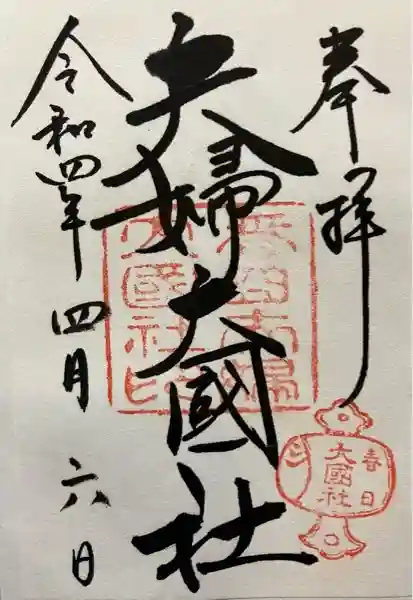 奉拝
夫婦大國社
令和四年 四月 六日
春日
大國社